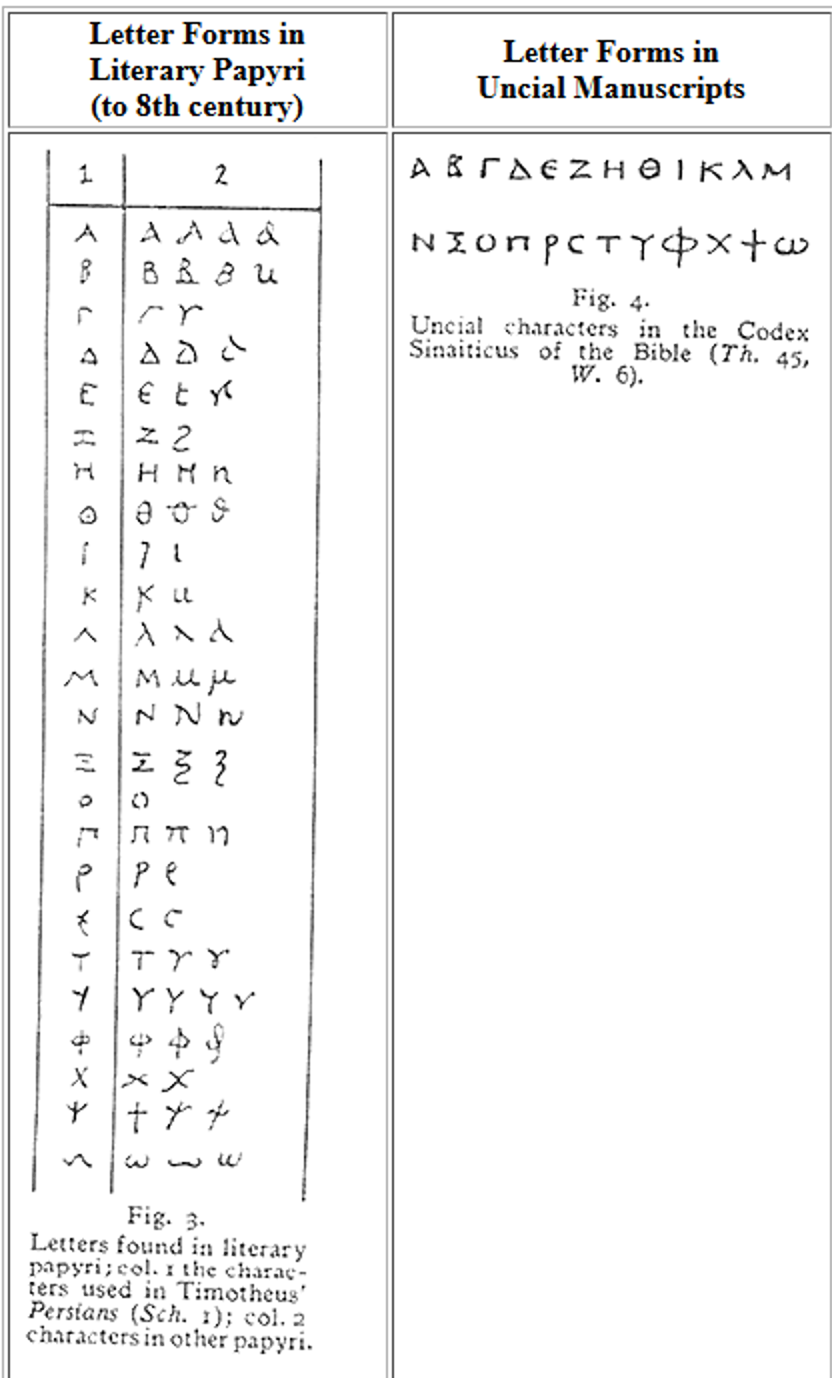 Letter Forms in
Literary Papyri
(to 8th century)
Letter Forms in
Uncial Manuscripts
1 2
Α Α Α Α Α
Β Β Β Β u
Γ Γ Υ
Δ Δ Δ
Ε Ε
Ζ Ζ Ζ
Η Η Η n
Θ θ ϑ
Ι Ι ι
Κ Κ u
Λ λ λ λ
Μ Μ μ μ
Ν Ν Ν Ν
Ξ Ξ ξ ξ
Ο Ο
Π Π π
Ρ Ρ ρ
Ϲ Ϲ
Τ Τ Τ
Υ Υ Υ Υ Υ
Φ Φ Φ
Χ Χ Χ
Ψ Ψ Ψ Ψ
ω ω ω
Fig. 3.
Letters found in literary
papyri; col. 1 the charac-
ters used in Timotheus'
Persians (Sch. 1); col. 2
characters in other papyri.
Α Β Γ Δ Ε Ζ Η Θ Ι Κ Λ Μ
Ν Ξ Ο Π Ρ Ϲ Τ Υ Φ Χ Ψ ω
Fig. 4.
Uncial characters in the Codex
Sinaiticus of the Bible (Th. 45,
W. 6).